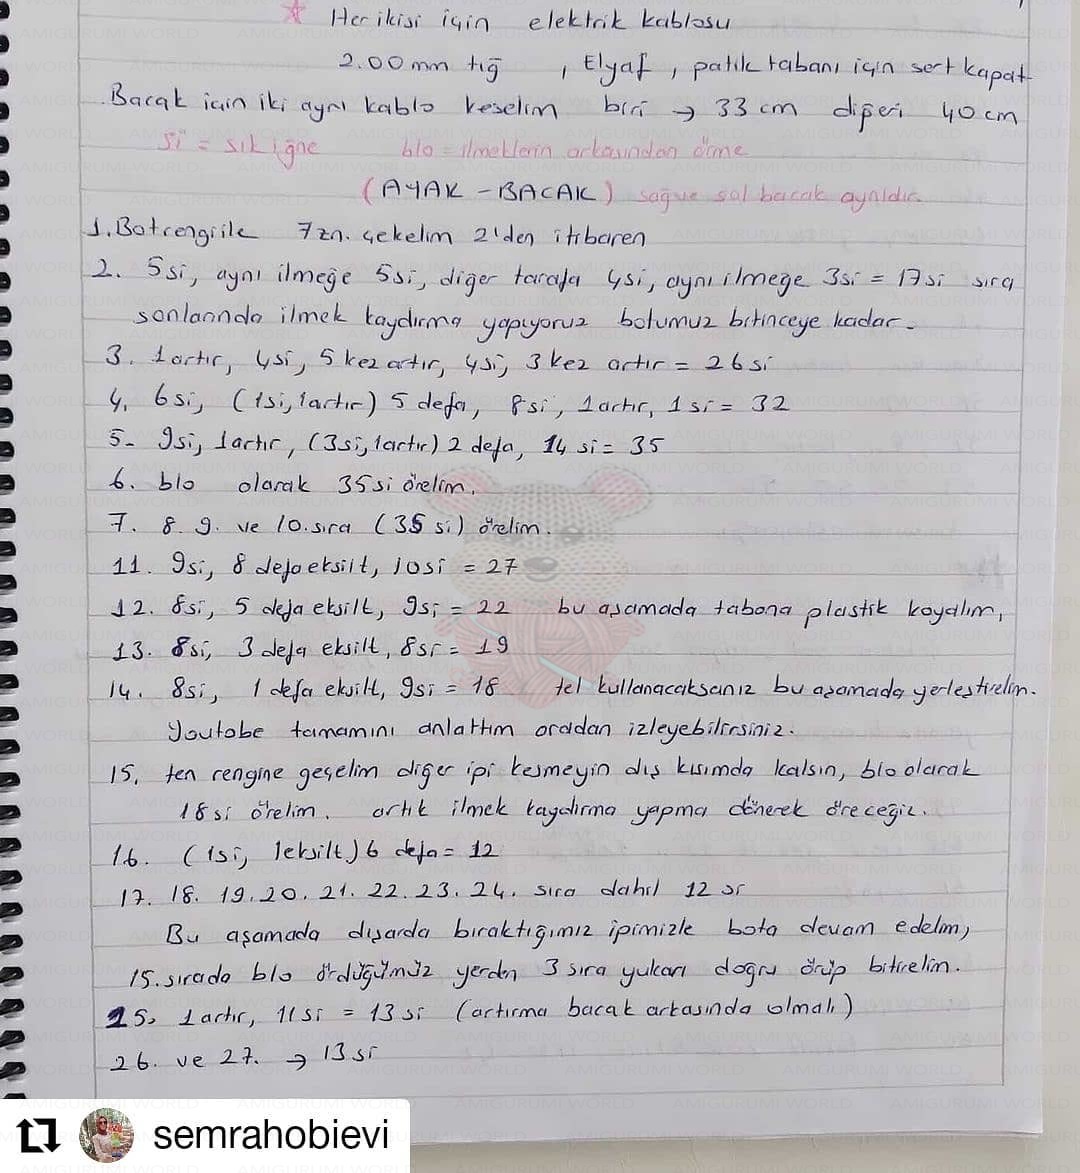 Her ikisi için elektrik kablosu
2.00 mm tığ , Elyaf , patik tabanı için sert kapat
Bacak için iki ayrı kablo keselim biri → 33 cm diğeri 40 cm
Si = sık iğne blo = ilmeklerin arkasından örme
(AYAK - BACAK) sağ ve sol bacak aynıdır.
1. Bot rengi ile 7 zn. çekelim 2'den itibaren
2. 5si, aynı ilmeğe 5si, diğer tarafa 4si, aynı ilmeğe 3si = 17si sıra
sonlarında ilmek kaydırma yapıyoruz botumuz bitinceye kadar.
3. 1 artır, 4si, 5 kez artır, 4si, 3 kez artır = 26 si
4. 6si, (1si, 1artır) 5 defa, 8si, 1artır, 1si = 32
5- 9si, 1artır, (3si, 1artır) 2 defa, 14 si = 35
6. blo olarak 35si örelim.
7. 8. 9. ve 10. sıra (35 si) örelim.
11. 9si, 8 defa eksilt, 10si = 27
12. 8si, 5 defa eksilt, 9si = 22 bu aşamada tabana plastik koyalım,
13. 8si, 3 defa eksilt, 8si = 19
14. 8si, 1 defa eksilt, 9si = 18 tel kullanacaksanız bu aşamada yerleştirelim.
Youtobe tamamını anlattım oradan izleyebilirsiniz.
15. ten rengine geçelim diğer ipi kesmeyin dış kısımda kalsın, blo olarak
18 si örelim. artık ilmek kaydırma yapma dönerek öreceğiz.
16. (1si, 1eksilt) 6 defa = 12
17. 18. 19. 20. 21. 22. 23. 24. sıra dahil 12 si
Bu aşamada dışarda bıraktığımız ipimizle bota devam edelim,
15. sırada blo ördüğümüz yerden 3 sıra yukarı doğru örüp bitirelim.
25. 1artır, 11si = 13 si (artırma bacak arkasında olmalı)
26. ve 27. → 13 si
semrahobievi